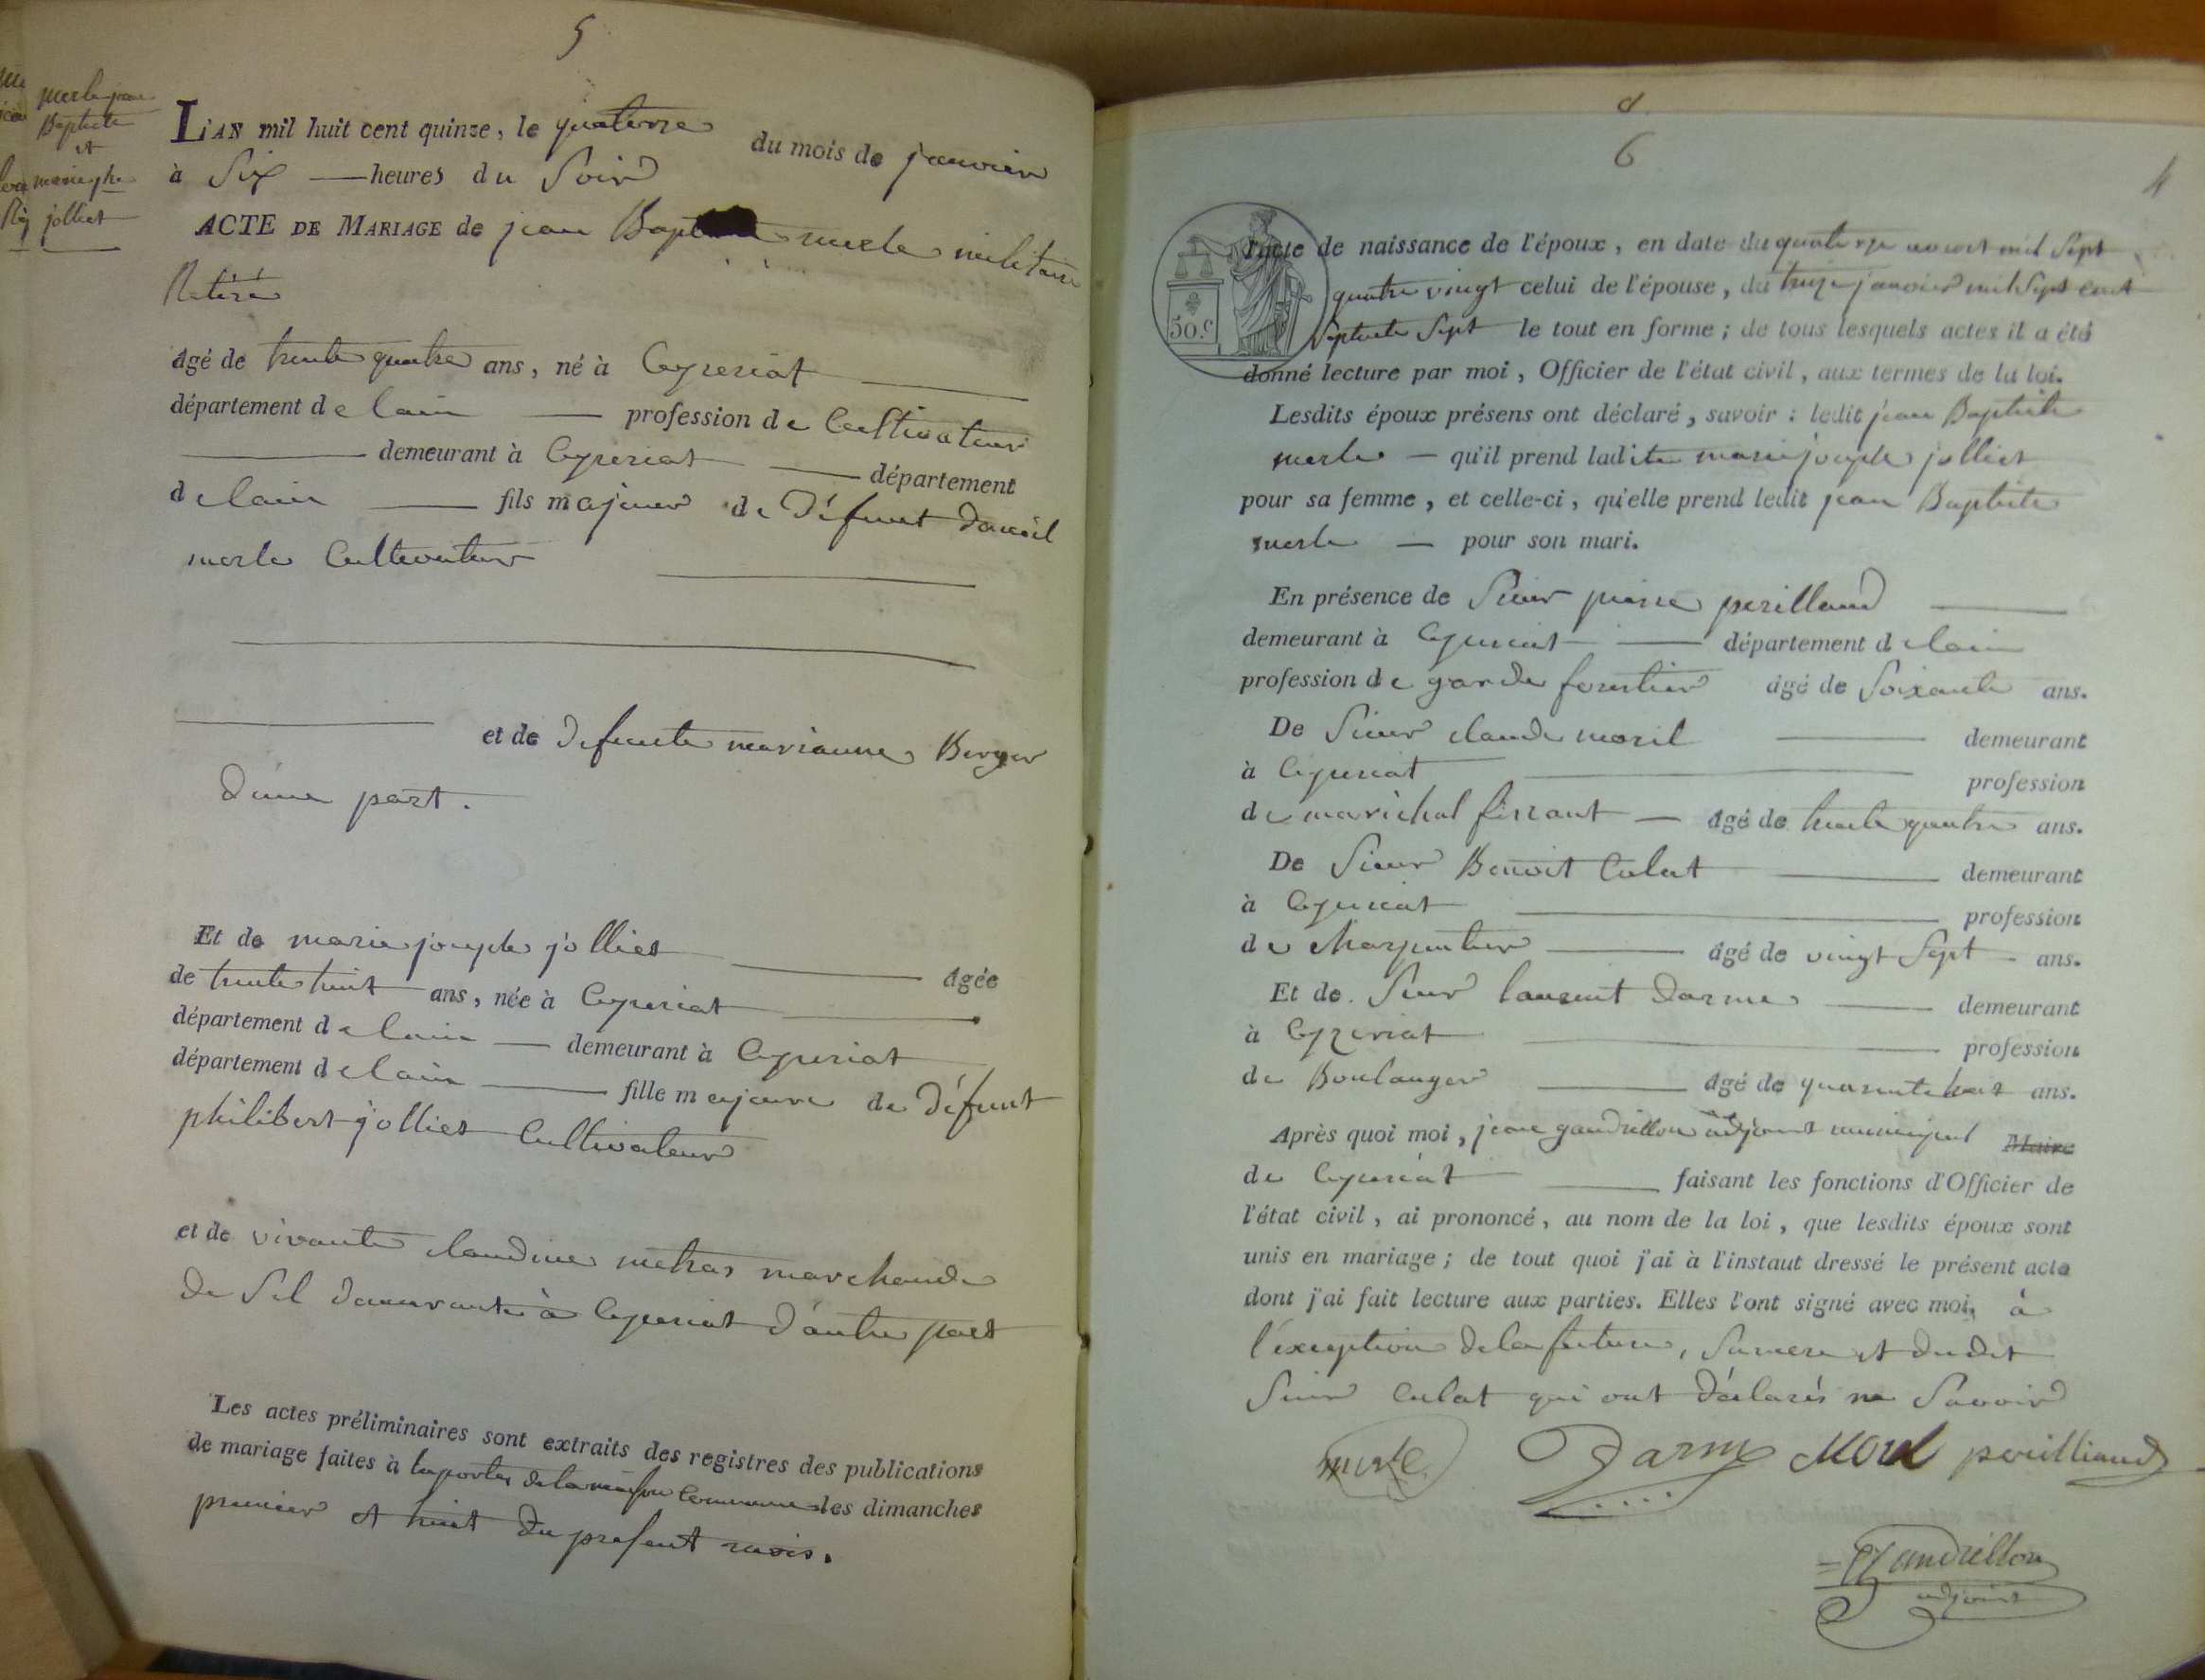 5
merle jean
Baptiste
et
marie jhe
jolliet
L'AN mil huit cent quinze, le quatorze du mois de janvier
à Six — heures du Soir
ACTE DE MARIAGE de jean Baptiste merle militaire
Retiré
âgé de trente quatre ans, né à Ceyzeriat
département de lain — profession de Cultivateur
demeurant à Ceyzeriat — département
de lain — fils majeur de Défunt Daniel
merle Cultivateur
et de defunte marianne Berger
d'une part.
Et de marie joseph jolliet âgée
de trente huit ans, née à Ceyzeriat
département de lain — demeurant à Ceyzeriat
département de lain — fille majeure de Défunt
philibert jolliet Cultivateur
et de vivante claudine metras marchande
de Sel demeurante à Ceyzeriat d'autre part
Les actes préliminaires sont extraits des registres des publications
de mariage faites à la porte de la maison Commune les dimanches
premier et huit du present mois.
6
4
50 c.
l'acte de naissance de l'époux, en date du quatorze aoust mil Sept
quatre vingt celui de l'épouse, du treize janvier mil Sept cent
Septente Sept le tout en forme ; de tous lesquels actes il a été
donné lecture par moi, Officier de l'état civil, aux termes de la loi.
Lesdits époux présens ont déclaré, savoir : ledit jean Baptiste
merle — qu'il prend ladite marie joseph jolliet
pour sa femme, et celle-ci, qu'elle prend ledit jean Baptiste
merle — pour son mari.
En présence de Sieur pierre perilland
demeurant à Ceyzeriat — département de lain
profession de garde forestier âgé de Soixante ans.
De Sieur claude morel demeurant
à Ceyzeriat profession
de marichal ferrant — âgé de trente quatre ans.
De Sieur Benoit Culat demeurant
à Ceyzeriat profession
de charpentier — âgé de vingt Sept ans.
Et de Sieur laurent Darme demeurant
à Ceyzeriat profession
de Boulanger — âgé de quarente huit ans.
Après quoi moi, jean gandrillon adjoint municipal Maire
de Ceyzeriat — faisant les fonctions d'Officier de
l'état civil, ai prononcé, au nom de la loi, que lesdits époux sont
unis en mariage ; de tout quoi j'ai à l'instaut dressé le présent acte
dont j'ai fait lecture aux parties. Elles l'ont signé avec moi, à
l'exception de la future, Sa mere et du dit
Sieur Culat qui ont déclarés ne Savoir
merle Darme Morel perilliand
Gandrillon
adjoint